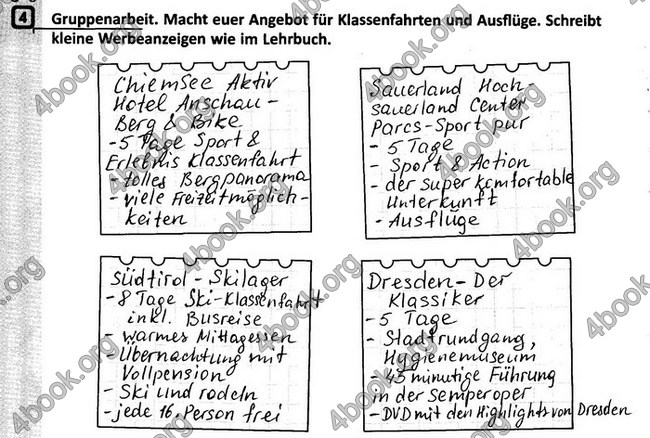 4 Gruppenarbeit. Macht euer Angebot für Klassenfahrten und Ausflüge. Schreibt
kleine Werbeanzeigen wie im Lehrbuch.
Chiemsee Aktiv
Hotel Anschau-
Berg & Bike
- 5 Tage Sport &
Erlebnis Klassenfahrt
- tolles Bergpanorama
- viele Freizeitmöglich-
keiten
Sauerland Hoch-
sauerland Center
Parcs-Sport pur
- 5 Tage
- Sport & Action
- der super komfortable
Unterkunft
- Ausflüge
Südtirol - Skilager
- 8 Tage Ski-Klassenfahrt
inkl. Busreise
- warmes Mittagessen
- Übernachtung mit
Vollpension
- Ski und rodeln
- jede 16. Person frei
Dresden - Der
Klassiker
- 5 Tage
- Stadtrundgang,
Hygienemuseum
45 minutige Führung
in der Semperoper
- DVD mit den Highlights von Dresden
4book.org
4book.org
4book.org
4book.org
4book.org
4book.org
4book.org
4book.org